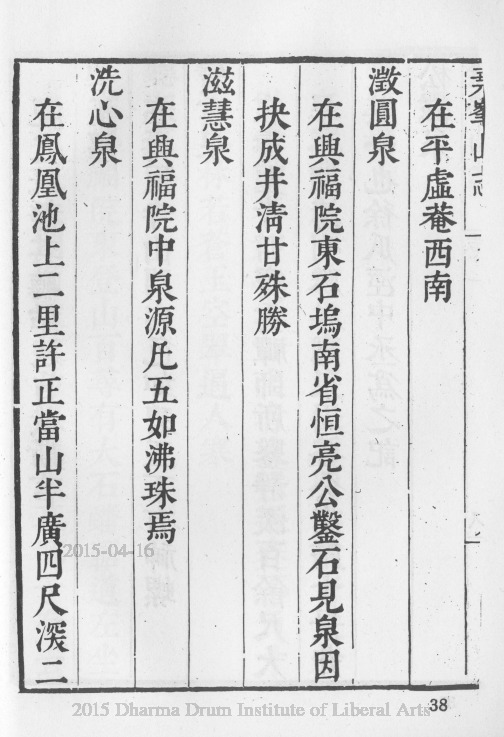 在平虛菴西南
澂圓泉
在興福院東石塢南省恒亮公鑿石見泉因
抉成井清甘殊勝
滋慧泉
在興福院中泉源凡五如沸珠焉
洗心泉
在鳳凰池上二里許正當山半廣四尺深二
2015-04-16
2015 Dharma Drum Institute of Liberal Arts
38